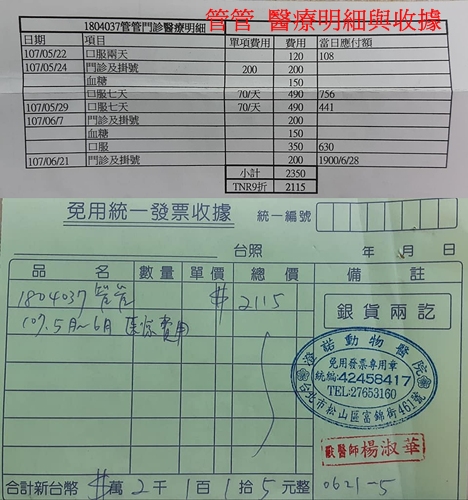 管管 醫療明細與收據
1804037管管門診醫療明細
日期 項目 單項費用 費用 當日應付額
107/05/22 口服兩天 120 108
107/05/24 門診及掛號 200 200
血糖 150
口服七天 70/天 490 756
107/05/29 口服七天 70/天 490 441
107/06/7 門診及掛號 200
血糖 150
口服 350 630
107/06/21 門診及掛號 200 1900/6/28
小計 2350
TNR9折 2115
免用統一發票收據 統一編號
台照 年 月 日
品名 數量 單價 總價 備註
1804037 管管 $2115
107.5月~6月 醫療費用
銀貨兩訖
澄諾動物醫院
免用發票專用章
統編:42458417
TEL:27653160
台北市松山區富錦街461號
獸醫師 楊淑華
合計新台幣 $ 萬 2 千 1 百 1 拾 5 元整 0621-5